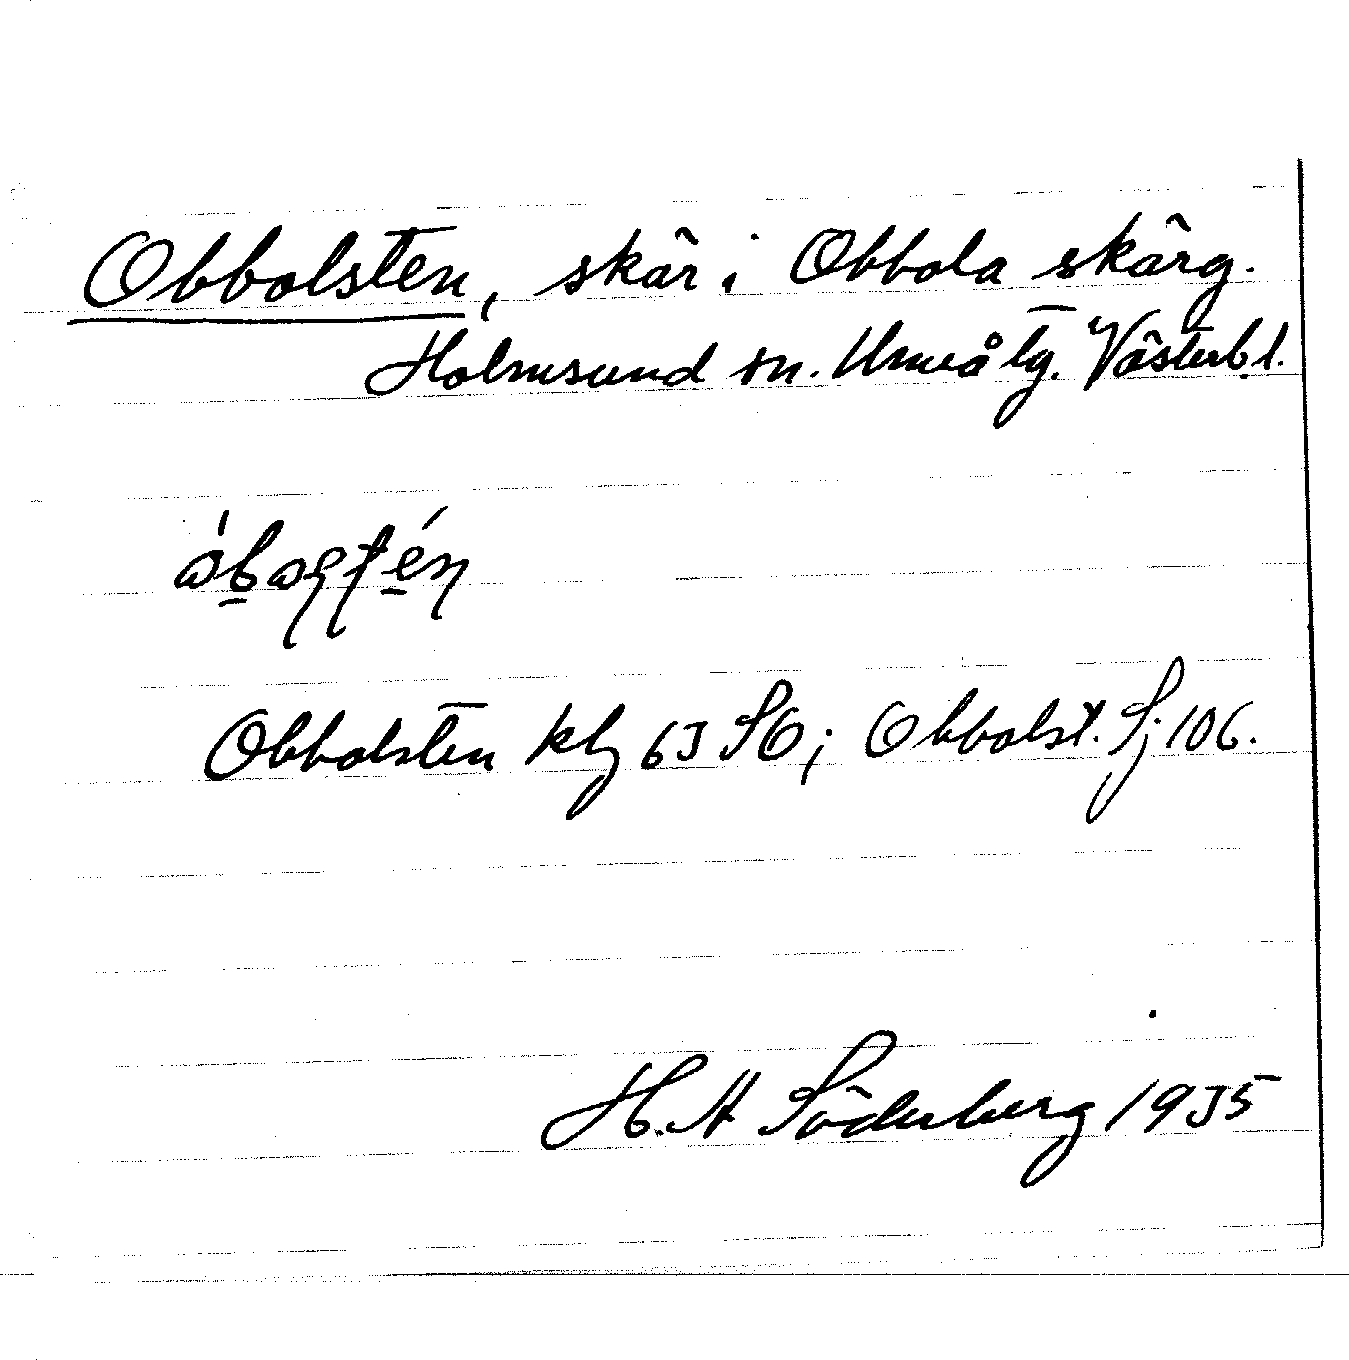 Obbolsten, skär i Obbola skärg.
Holmsund sn. Umeå tg. Västerb. l.
Obbolsten kbl 63 SO; Obbolst. Sj 106.
H. A Söderberg 1935